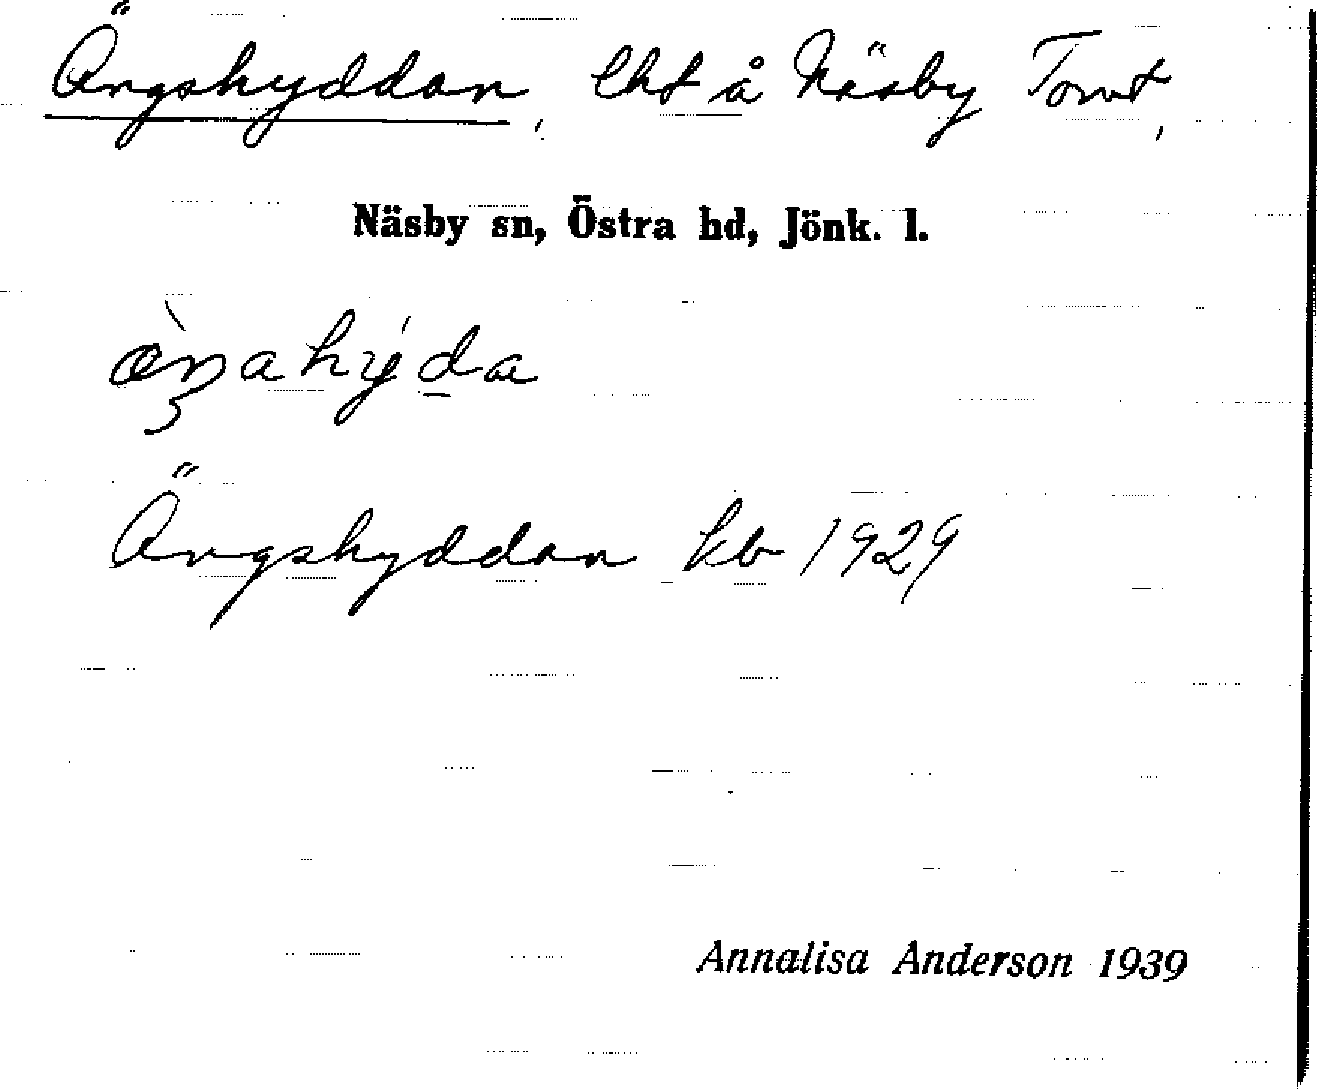 Ängshyddan, lht å Näsby Tomt,
Näsby sn, Östra hd, Jönk. l.
Ängshyddan kb 1929
Annalisa Anderson 1939